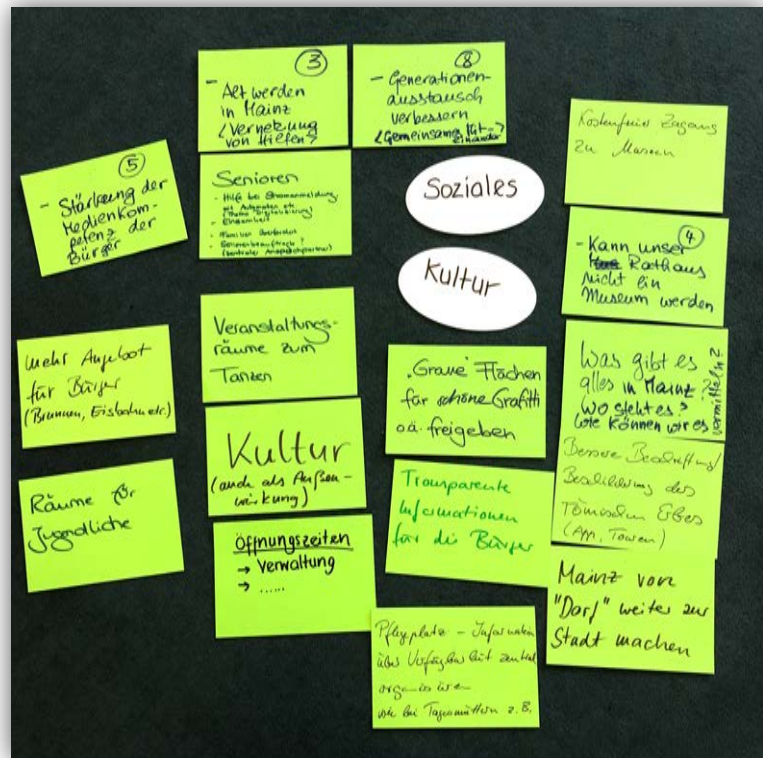 ③
- Alt werden
in Mainz
<Vernetzung
von Hilfen>
⑧
- Generationen-
ausstausch
verbessern
<Gemeinsames Mit-
einander>
⑤
- Stärkung der
Medienkom-
petenz der
Bürger
Senioren
- Hilfe bei Stromanmeldung,
mit Automaten etc.
(Thema Digitalisierung)
- Einsamkeit
- Familien überfordert
- Seniorenbeauftragte?
(zentraler Ansprechpartner)
Soziales
Kultur
Kostenfreier Zugang
zu Museen
④
- Kann unser
Rathaus
nicht ein
Museum werden
mehr Angebot
für Bürger
(Brunnen, Eisbahn etc.)
Veranstaltungs-
räume zum
Tanzen
"Graue" Flächen
für schöne Grafitti
o.ä. freigeben
Was gibt es
alles in Mainz?
Wo steht es?
Wie können wir es
vermitteln?
Räume für
Jugendliche
Kultur
(auch als Außen-
wirkung)
Transparente
Informationen
für die Bürger
Bessere Beschriftung/
Beschilderung des
römischen Erbes
(App, Touren)
Öffnungszeiten
→ Verwaltung
→ ......
Mainz von
"Dorf" weiter zur
Stadt machen
Pflegeplatz - Information
über Verfügbarkeit zentral
organisieren
wie bei Tagesmüttern z.B.